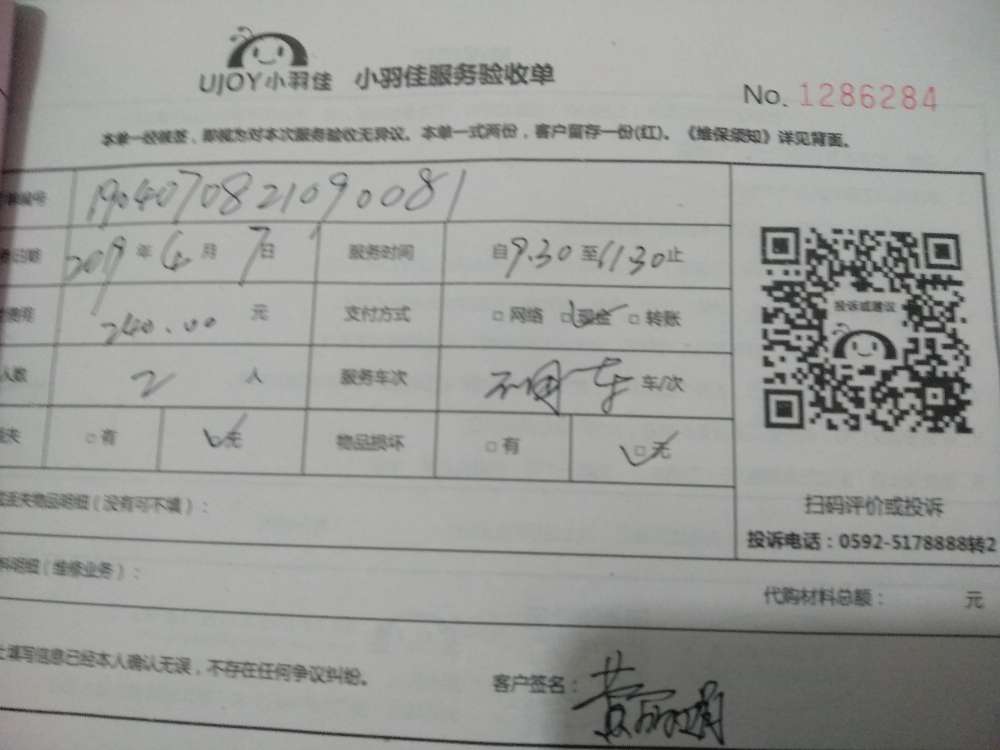 UJOY小羽佳 小羽佳服务验收单
No. 1286284
本单一经候签，即视为对本次服务验收无异议。本单一式两份，客户留存一份(红)。《维保须知》详见背面。
编号 1904070821090081
日期 2019年4月7日 服务时间 自9.30至11.30止
费用 240.00元 支付方式 □网络 □现金 □转账
人数 2人 服务车次 不用车 车/次
失 □有 □无 物品损坏 □有 □无
投诉或建议
扫码评价或投诉
投诉电话：0592-5178888转2
丢失物品明细（没有可不填）：
料明细（维修业务）： 代购材料总额： 元
上填写信息已经本人确认无误，不存在任何争议纠纷。 客户签名：黄丽娟